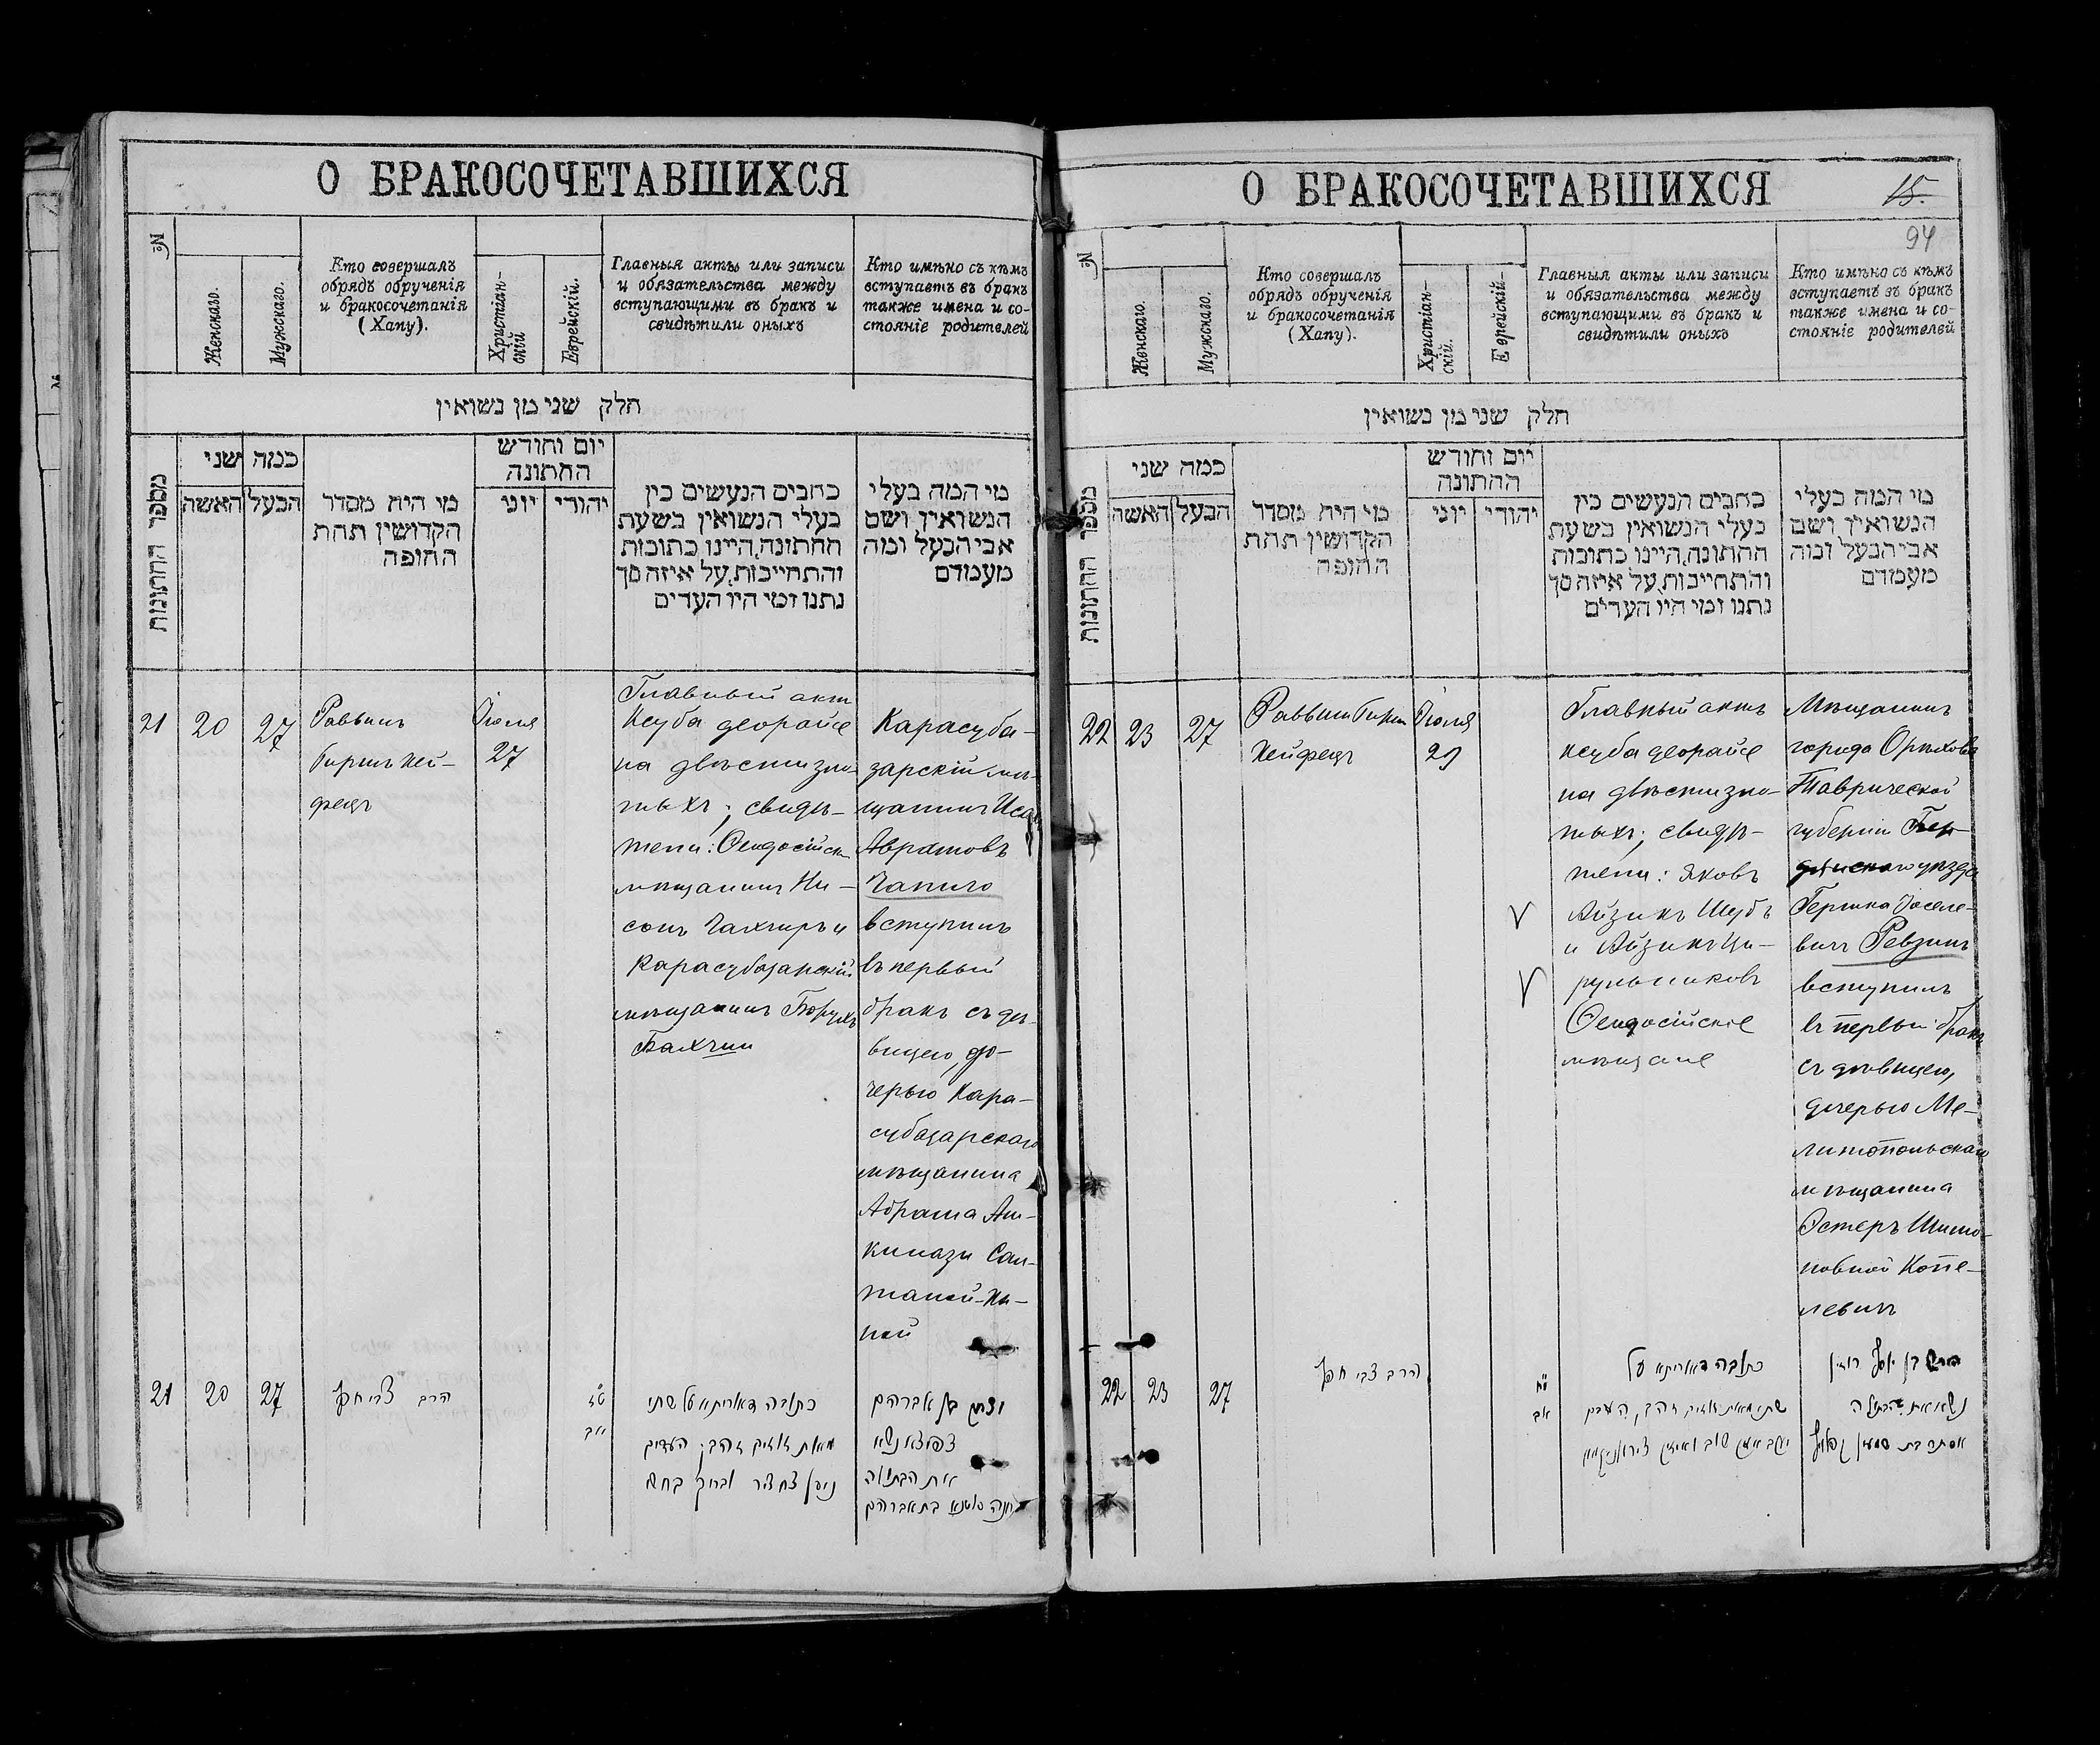 О БРАКОСОЧЕТАВШИХСЯ
№
Женскаго.
Мужскаго.
Кто совершалъ
обрядъ обрученія
и бракосочетанія
(Хапу).
Христіан-
скій
Еврейскій.
Главныя акты или записи
и обязательства между
вступающими въ бракъ и
свидѣтили оныхъ
Кто имѣно съ кѣмъ
вступаетъ въ бракъ
также имена и со-
стояніе родителей
חלק שני מן נשואין
מספר החתונות
כמה שני
האשה
הבעל
מי היה מסדר
הקדושין תחת
החופה
יום וחודש
החתונה
יוני
יהודי
כתבים הנעשים בין
בעלי הנשואין בשעת
החתונה, היינו כתובות
והתחייבות, על איזה סך
נתנו ומי היו העדים
מי המה בעלי
הנשואין ושם
אבי הבעל ומה
מעמדם
21
20
27
Раввинъ
Гиршъ Хей-
фецъ
Іюля
27
Главный актъ
Ксуба деорайсе
на двѣсти зло-
тыхъ; свидѣ-
тели: Ѳеодосійск
мѣщанинъ Ни-
сонъ Чахчиръ и
Карасубазарскій
мѣщанинъ Борухъ
Бахчи
Карасуба-
зарскій мѣ-
щанинъ Исаакъ
Аврамовъ
Чапичо
вступилъ
въ первый
бракъ съ дѣ-
вицею, до-
черью Кара-
субазарскаго
мѣщанина
Абрама Аш-
кинази Сал-
таной-Ха-
ной
21
20
27
הרב צבי חפץ
ט״ז
אב
כתובה דאוריתא על שתי
מאות זוזים זהב; העדים
ניסן צחציר וברוך בחשי
יצחק בן אברהם
צפיצא נשא
את הבתולה
חנה סולטנא בת אברהם
О БРАКОСОЧЕТАВШИХСЯ
15.
94
№
Женскаго.
Мужскаго.
Кто совершалъ
обрядъ обрученія
и бракосочетанія
(Хапу).
Христіан-
скій.
Еврейскій-
Главныя акты или записи
и обязательства между
вступающими въ бракъ и
свидѣтили оныхъ
Кто имѣно съ кѣмъ
вступаетъ въ бракъ
также имена и со-
стояніе родителей
חלק שני מן נשואין
מספר החתונות
כמה שני
האשה
הבעל
מי היה מסדר
הקדושין תחת
החופה
יום וחודש
החתונה
יוני
יהודי
כתבים הנעשים בין
בעלי הנשואין בשעת
החתונה, היינו כתובות
והתחייבות, על איזה סך
נתנו ומי היו העדים
מי המה בעלי
הנשואין ושם
אבי הבעל ומה
מעמדם
22
23
27
Раввинъ Гиршъ
Хейфецъ
Іюля
29
Главный актъ
ксуба деорайсе
на двѣсти зло-
тыхъ; свидѣ-
тели: Яковъ
Айзикъ Шубъ
и Айзикъ Ци-
рульниковъ
Ѳеодосійскіе
мѣщане
Мѣщанинъ
города Орѣхова
Таврической
губерніи Бер-
дянскаго уѣзда
Гершка Іоселе-
вичъ Ревзинъ
вступилъ
въ первый бракъ
съ дѣвицею,
дочерью Ме-
литопольскаго
мѣщанина
Эстеръ Шимо-
новной Копе-
левичъ
22
23
27
הרב צבי חפץ
י״ח
אב
כתובה דאוריתא על
שתי מאות זוזים זהב; העדים
יעקב אייזיק שוב ואייזיק צירולניקאוו
הירש בן יוסף רווזין
נשא את הבתולה
אסתר בת שמעון קפלוויץ